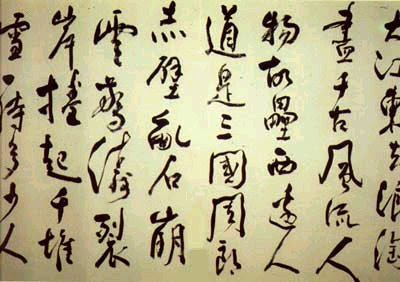 大江東去浪淘
盡千古風流人
物故壘西邊人
道是三國周郎
赤壁亂石崩
雲驚濤裂
岸捲起千堆
雪一時多少人